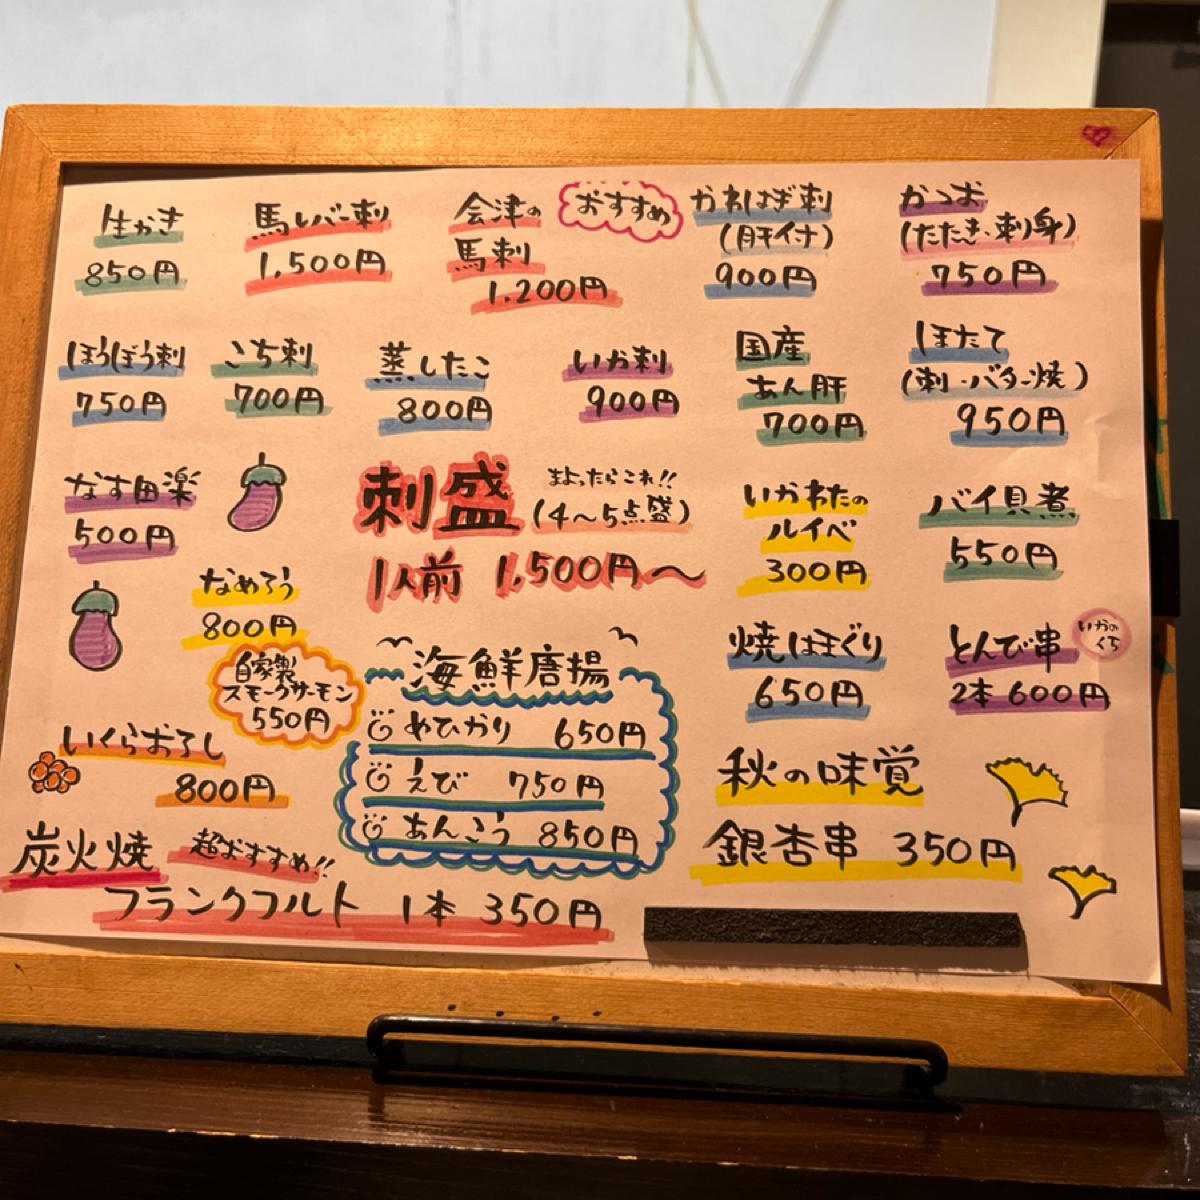 生かき
850円
馬レバー刺
1,500円
会津の
馬刺
1,200円
おすすめ
かわはぎ刺
(肝付)
900円
かつお
(たたき・刺身)
750円
ほうぼう刺
750円
こち刺
700円
蒸したこ
800円
いか刺
900円
国産
あん肝
700円
ほたて
(刺・バター焼)
950円
なす田楽
500円
刺盛
まよったらこれ!!
(4〜5点盛)
1人前 1,500円〜
いかわたの
ルイベ
300円
バイ貝煮
550円
なめろう
800円
自家製
スモークサーモン
550円
海鮮唐揚
めひかり 650円
えび 750円
あんこう 850円
焼はまぐり
650円
とんび串
いかの
くち
2本 600円
いくらおろし
800円
秋の味覚
銀杏串 350円
炭火焼
超おすすめ!!
フランクフルト 1本 350円